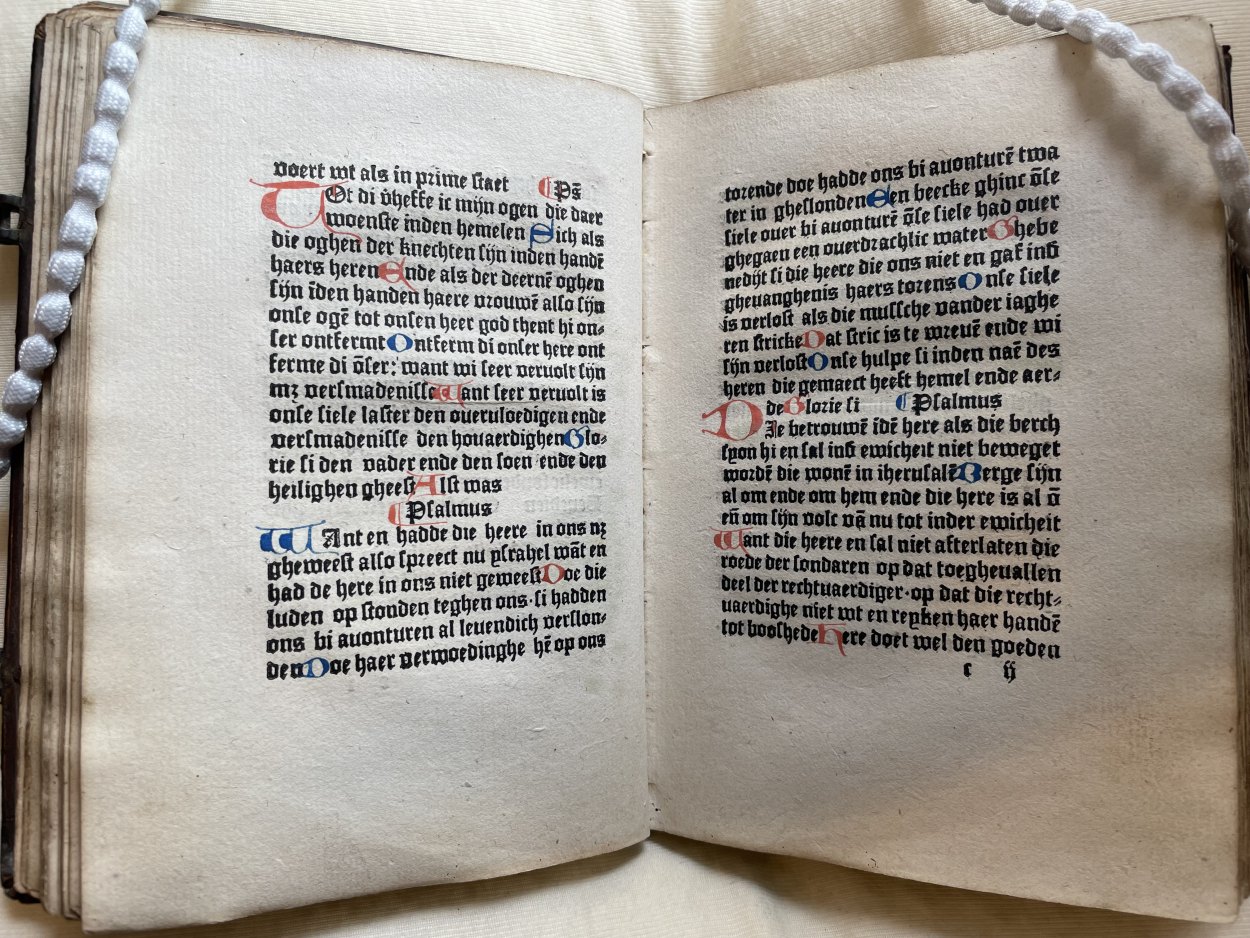 voert wt als in prime staet ¶ Ps̄
TOt di v̄heffe ic mijn ogen die daer
woenste inden hemelen Sich als
die oghen der knechten sijn inden handē
haers heren Ende als der deernē oghen
sijn īden handen haere vrouwē also sijn
onse ogē tot onsen heer god thent hi on⸗
ser ontfermt Ontferm di onser here ont
ferme di ōser: want wi seer vervolt sijn
mꝫ versmadenisse Want seer vervolt is
onse siele laster den overuloedigen ende
versmadenisse den houaerdighen Glo⸗
rie si den vader ende den soen ende den
heilighen gheest Alst was
¶ Psalmus
WAnt en hadde die heere in ons nꝫ
gheweest also spreect nu ysrahel wāt en
had de here in ons niet geweest Doe die
luden op stonden teghen ons· si hadden
ons bi auonturen al leuendich verslon⸗
den Doe haer verwoedinghe hē op ons
torende doe hadde ons bi auonturē twa
ter in gheslonden Een beecke ghinc ōse
siele ouer bi auonturē ōse siele had ouer
ghegaen een ouerdrachlic water Ghebe
nedijt si die heere die ons niet en gaf inδ
gheuanghenis haers torens Onse siele
is verlost als die mussche vander iaghe
ren stricke Dat stric is te wreuē ende wi
sijn verlost Onse hulpe si inden naē des
heren die gemaect heeft hemel ende aer⸗
de Glorie si ¶ Psalmus
DIe betrouwē īdē here als die berch
syon hi en sal inδ ewicheit niet beweget
wordē die wonē in iherusalē Berge sijn
al om ende om hem ende die here is al ō
eñ om sijn volc vā nu tot inder ewicheit
Want die heere en sal niet afterlaten die
roede der sondaren op dat toegheuallen
deel der rechtuaerdiger· op dat die recht⸗
uaerdighe niet wt en reyken haer handē
tot boosheden Here doet wel den goeden
c ij